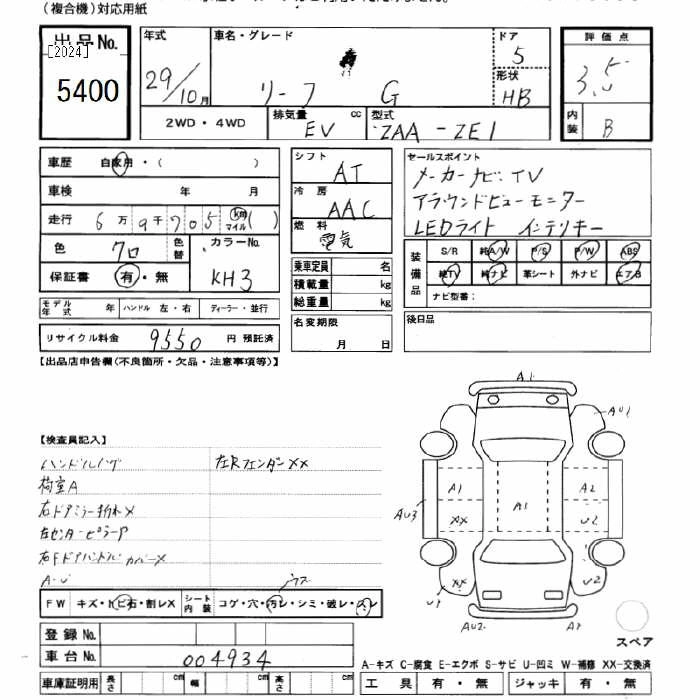 (複合機)対応用紙
出品No.
[2024]
5400
年式
29/10月
車名・グレード
リーフ G
ドア
5
形状
HB
評価点
3.5
内装
B
2WD・4WD
排気量 EV cc
型式 ZAA-ZE1
車歴 自家用・( )
車検 年 月
走行 6万9千705 km マイル ( )
色 クロ 色替
カラーNo. KH3
保証書 有・無
モデル年式 年 ハンドル 左・右 ディーラー・並行
リサイクル料金 9550 円 預託済
シフト AT
冷房 AAC
燃料 電気
乗車定員 名
積載量 kg
総重量 kg
名変期限
月 日
セールスポイント
メーカーナビ・TV
アラウンドビューモニター
LEDライト インテリキー
装備品
S/R 純A/W P/S P/W ABS
純TV 純ナビ 革シート 外ナビ エアB
ナビ型番:
後日品
【出品店申告欄(不良箇所・欠品・注意事項等)】
【検査員記入】
ハンドルハゲ
左RフェンダーXX
荷室A
右ドアミラー折れX
左センターピラーP
右FドアハンドルカバーX
A・U
ウス
FW キズ・トビ石・割レX
シート内装 コゲ・穴・汚レ・シミ・破レ・スレ
登録No.
車台No. 004934
車庫証明用 長さ cm 幅 cm 高さ cm
A1
AU1
A1
A2
A1
AU3
XX
U2
XX
U2
U9
AU2
A2
スペア
A-キズ C-腐食 E-エクボ S-サビ U-凹ミ W-補修 XX-交換済
工具 有・無 ジャッキ 有・無